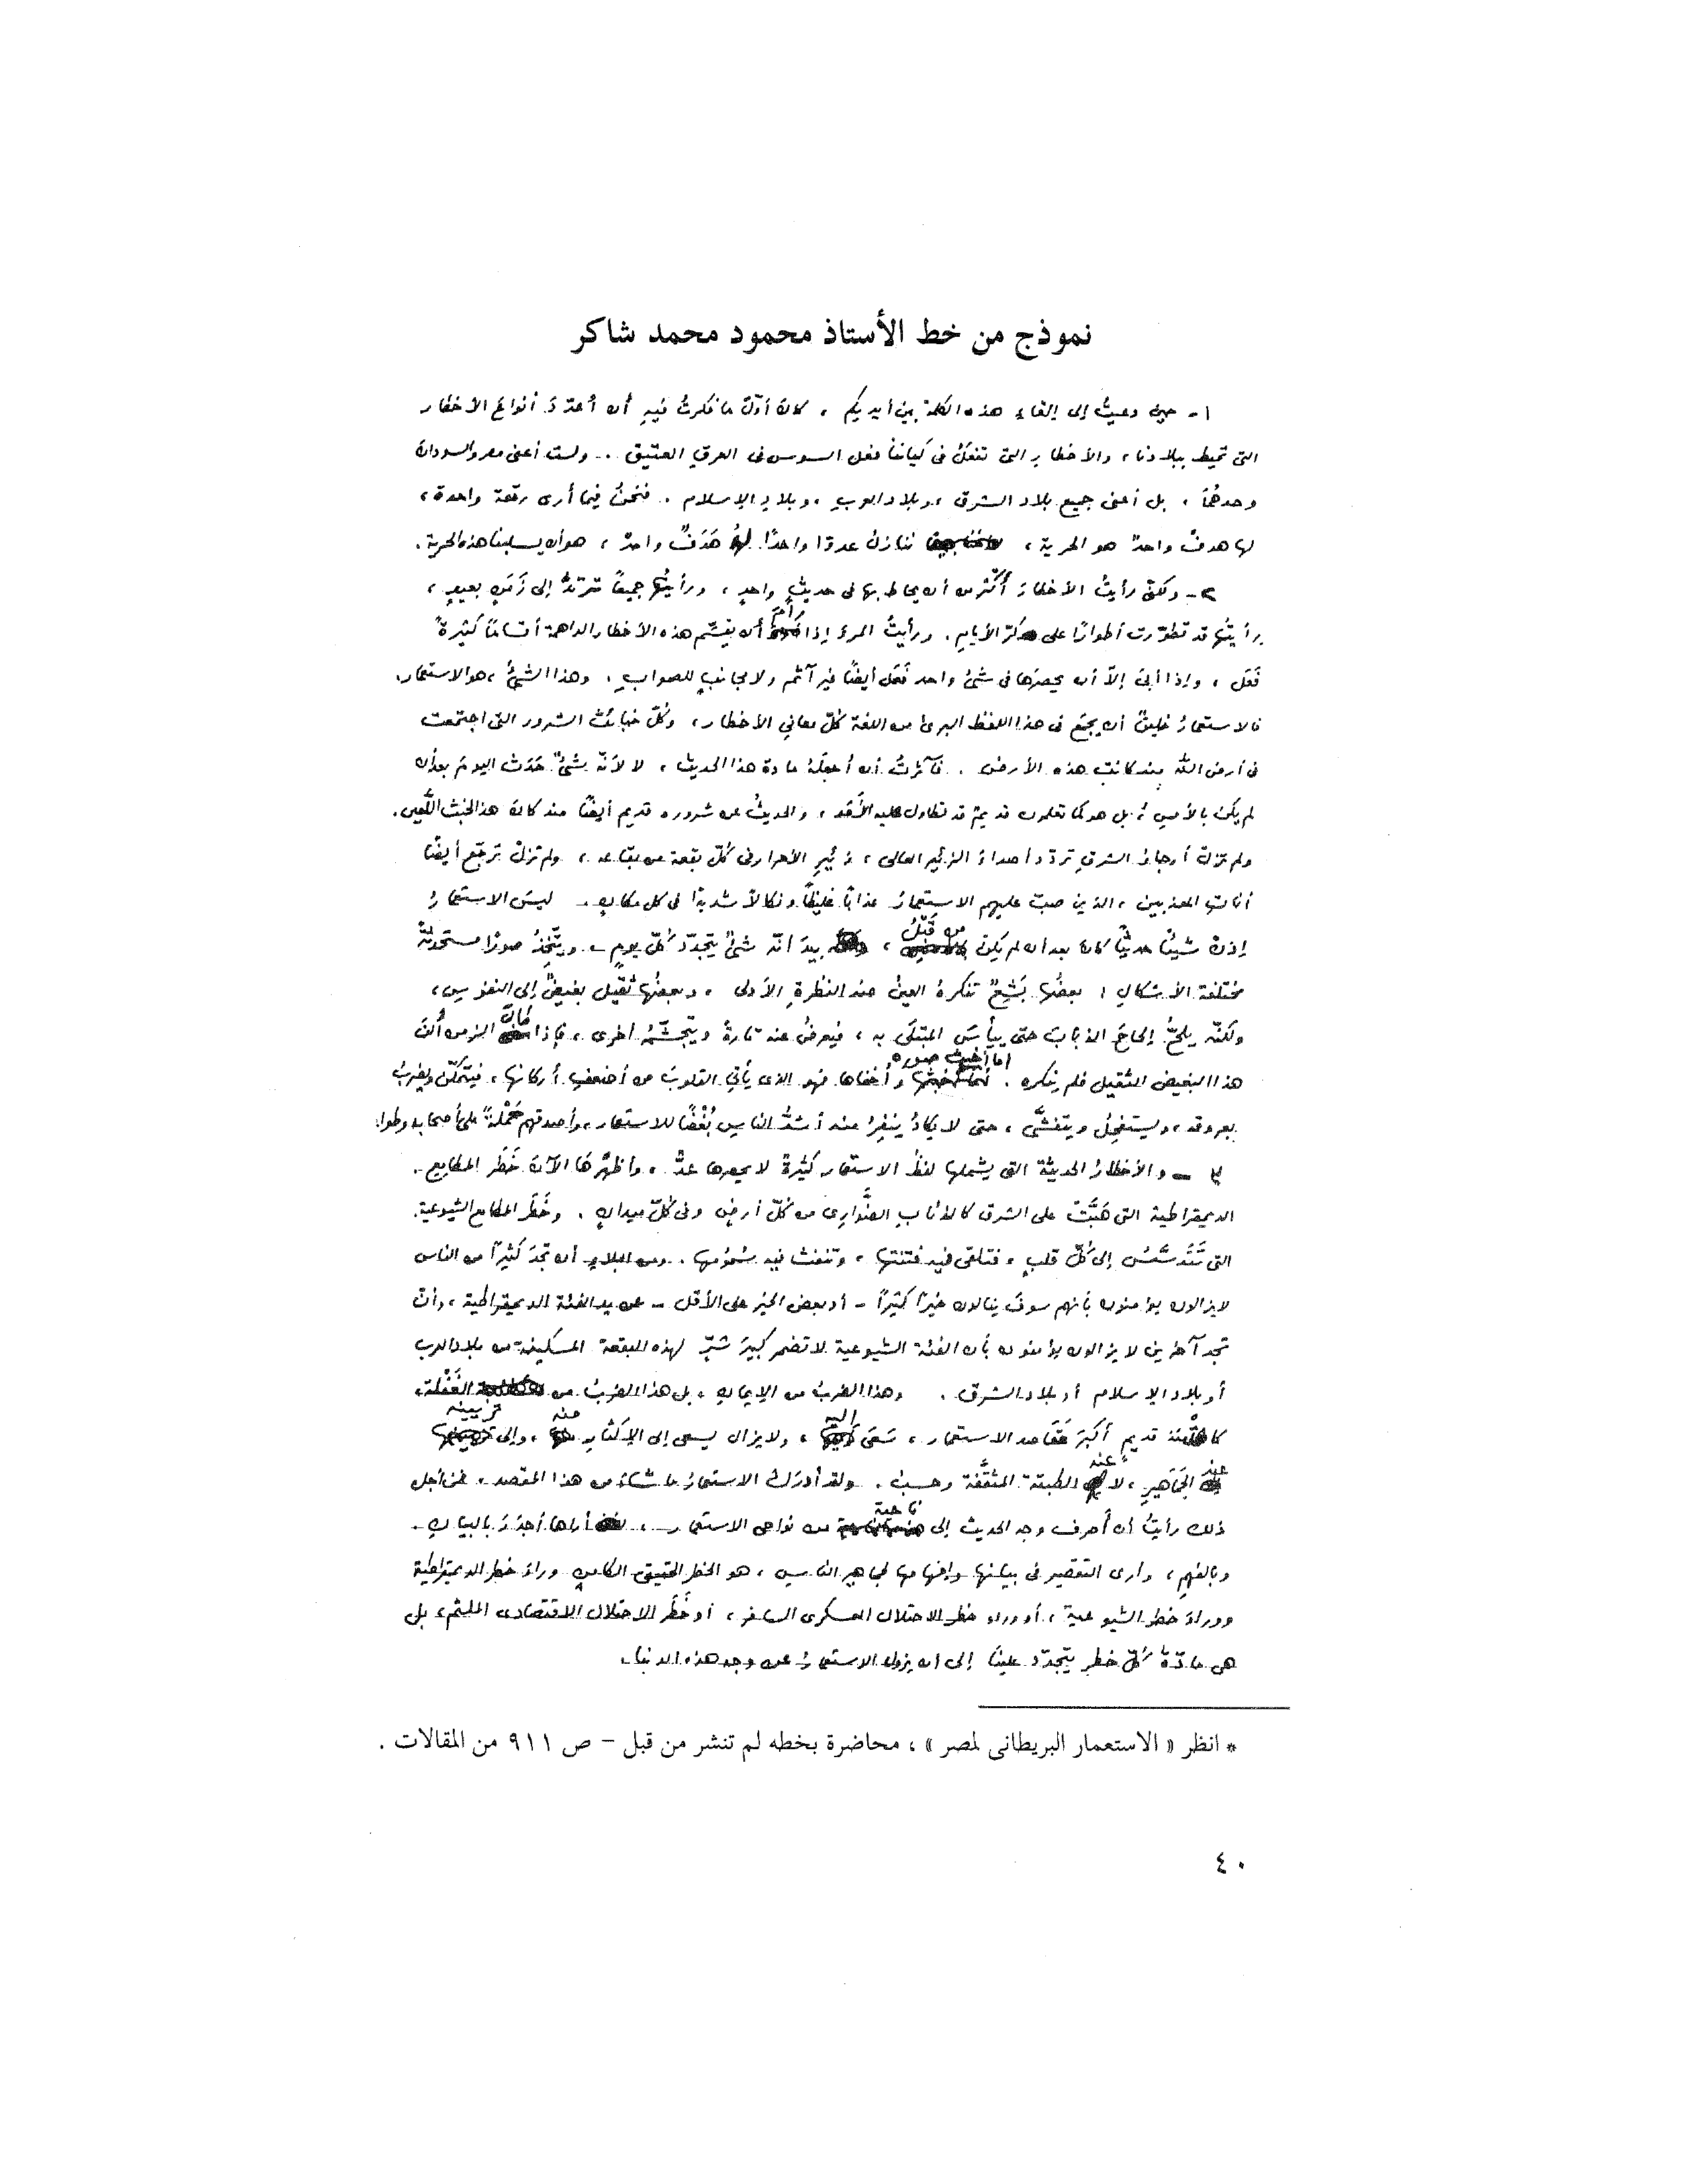 نموذج من خط الأستاذ محمود محمد شاكر
١ - حين دعيتُ إلى إلقاءِ هذه الكلمة بين أيديكم ، كان أوّلَ ما فكرتُ فيهِ أن أُعدّدَ أنواعَ الأخطار
التى تحيط ببلادنا ، والأخطار التى تفعَلُ فى كياننا فعل السوس فى العرقِ العتيق . ولست أعنى مصر والسودان
وحدهُمَا ، بل أعنى جميع بلاد الشرق ، وبلاد العربِ ، وبلادِ الإسلام . فنحنُ فيما أرى رقعة واحدة ،
لها هدفٌ واحدٌ هو الحرية ، ننازل عدوًّا واحدًا لهُ هَدَفٌ واحدٌ ، هو أن يسلبنا هذه الحرية .
٢ - ولكنّى رأيتُ الأخطارَ أكْثَر من أن يحاط بها فى حديثٍ واحدٍ ، ورأيتُها جميعًا ترتدُّ إلى زَمَنٍ بعيدٍ ،
ورأيتُها قد تطوّرت أطوارًا على كرّ الأيامِ . ورأيتُ المرءَ إذا رامَ أن يقسِّم هذه الأخطار الداهمة أقسامًا كثيرةً
فَعَل ، وإذا أبَى إلاّ أن يحصرَها فى شىءٍ واحد فَعَل أيضًا غير آثم ولا مجانبٍ للصوابِ . وهذا الشىءُ ، هو الاستعمار .
فالاستعمارُ خليقٌ أن يجمَع فى هذا اللفظ البرىءِ من اللغة كُلّ معانى الأخطار ، وكُلّ خبائث الشرور التى اجتمعت
فى أرض الله منذ كانت هذه الأرض . فآثرتُ أن أجعَلَهُ مادة هذا الحديث ، لا لأنّه شىءٌ حَدَث اليومَ بعد أن
لم يكن بالأمسِ ، بل هو كما تعلمون قديمٌ قد تطاول عليه الأَمَد ، والحديثُ عن شروره قديم أيضًا منذ كان هذا الخبث اللَّعين .
ولم تزلْ أرجاءُ الشرقِ تردّد أصداءَ الزئير العالى ، زئيرِ الأحرار فى كُلّ بقعة من بقاعه ، ولم تزلْ ترجّع أيضًا
أناتِ المعذبين ، الذين صبَّ عليهم الاستعمارُ عذابًا غليظًا ونكالاً شديدًا فى كل مكانٍ . ليسَ الاستعمارُ
إذنْ شيئًا حديثًا كان بعد أن لم يكن من قَبْلُ ، بيدَ أنّه شىءٌ يتجدّد كُلّ يومٍ . ويتَّخِذُ صورًا مستحدثةً
مختلفة الأشكالِ ؛ بعضُها بَشِعٌ تنكرهُ العينُ عند النظرةِ الأولى ، وبعضُها ثقيل بغيضٌ إلى النفوسِ ،
ولكنّه يلحُّ إلحاحَ الذبابِ حتى ييأسَ المبتلَى به ، فيعرضُ عنه تارةً ويتجشّمُه أخرى ، فإذا طالَ الزمن أَلِفَ
هذا البغيض الثقيل فلم ينكره . أما أخبث صوره وأخفاها فهو الذى يأتى القلوبَ من أضعفِ أركانها ، فيتمكّن ويضربُ
بعروقه ، ويستفحِل ويتفشَّى ، حتى لا يكادُ ينفِرُ منه أشدُّ الناسِ بُغْضًا للاستعمار ، وأصدقهم حَمْلةً على أصحابه وطواغيته
٣ - والأخطارُ الحديثة التى يشملها لفظُ الاستعمار كثيرةٌ لا يحصرها عدٌّ ، وأظهَرُها الآنَ خَطَر المطامع
الديمقراطية التى هَبَّتْ على الشرق كالذئابِ الضَّوارِى من كُلّ أرضٍ وفى كُلّ ميدانٍ . وخَطَر المطامع الشيوعية
التى تَتَدسَّسُ إلى كُلّ قلبٍ ، فتلقى فيه فتنتها ، وتنفث فيه سُمُومها . ومن البلاءِ أن تجدَ كثيرًا من الناس
لا يزالون يؤمنون بأنهم سوفَ ينالون خيرًا كثيرًا - أو بعض الخير على الأقل - من يد الفئة الديمقراطية ، وأن
تجد آخرين لا يزالون يؤمنون بأن الفئة الشيوعية لا تضمر كبيرَ شرٍّ لهذه البقعة المسكينة من بلاد العرب
أو بلاد الإسلام أو بلاد الشرق . وهذا الضربُ من الإيمانِ ، بل هذا الضربُ من الغَفْلة ،
كان منذ قديمٍ أكبَرَ مَقَاصد الاستعمار ، سَعَى إليه ، ولا يزال يسعى إلى الإكْثارِ منه ، وإلى تزيينه
عندَ الجَمَاهيرِ ، لا عندَ الطبقة المثقَّفة وحسبُ . ولقد أدرَكَ الاستعمارُ ما شاءَ من هذا المقصد . فمن أجل
ذلك رأيتُ أن أصرف وجه الحديث إلى ناحية من نواحى الاستعمار ، أراها أجدَرَ بالبيانِ
وبالفهمِ ، وأرى التقصير فى بيانها وإفهامها لجماهير الناسِ ، هو الخطر الحقيقى الكامنِ وراءَ خطر الديمقراطية
ووراءَ خطر الشيوعية ، أو وراء خطر الاحتلال العسكرى السافر ، أو خَطَر الاحتلال الاقتصادى الملثم ، بل
هى مادّةُ كُلّ خطرٍ يتجدّد علينَا إلى أن يزولَ الاستعمارُ عن وجه هذه الدنيا .
* انظر « الاستعمار البريطانى لمصر » ، محاضرة بخطه لم تنشر من قبل – ص ٩١١ من المقالات .
٤٠